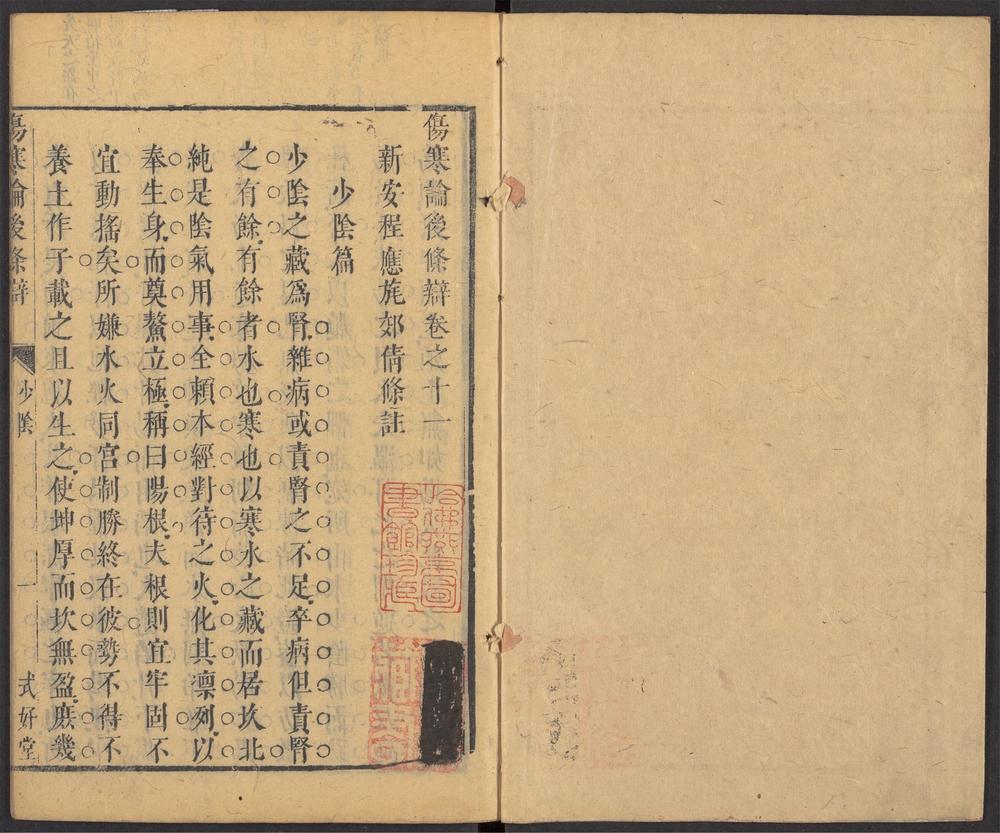 傷寒論後條辯卷之十一
新安程應旄郊倩條註
少陰篇
少陰之藏爲腎雜病或責腎之不足卒病但責腎
之有餘有餘者水也寒也以寒水之藏而居坎北
純是陰氣用事全賴本經對待之火化其凛列以
奉生身而奠鰲立極稱曰陽根夫根則宜牢固不
宜動搖矣所嫌水火同宮制勝終在彼勢不得不
養土作子載之且以生之使坤厚而坎無盈庶幾
傷寒論後條辯
少陰
一
式好堂
哈佛燕京圖書館珍藏